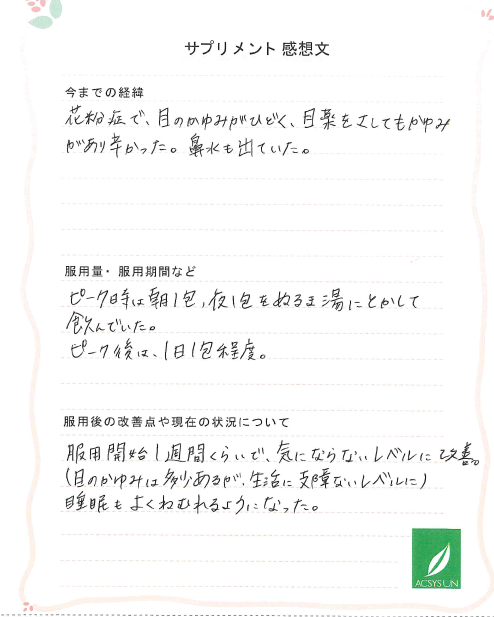 サプリメント 感想文
今までの経緯
花粉症で、目のかゆみがひどく、目薬をさしてもかゆみ
があり辛かった。鼻水も出ていた。
服用量・服用期間など
ピーク時は朝1包,夜1包をぬるま湯にとかして
飲んでいた。
ピーク後は、1日1包程度。
服用後の改善点や現在の状況について
服用開始1週間くらいで、気にならないレベルに改善。
(目のかゆみは多少あるが、生活に支障ないレベルに)
睡眠もよくねむれるようになった。
ACSYSUN